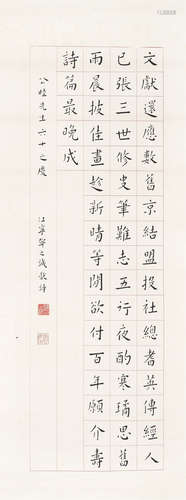 文獻還應數舊京結盟投社總耆英傳經人
已張三世修史筆難志五行夜酌寒璚思舊
雨晨披佳畫趁新晴等閒欲付百年願介壽
詩篇最晚成
公睦先生六十之慶
江寧鄧之誠敬詩